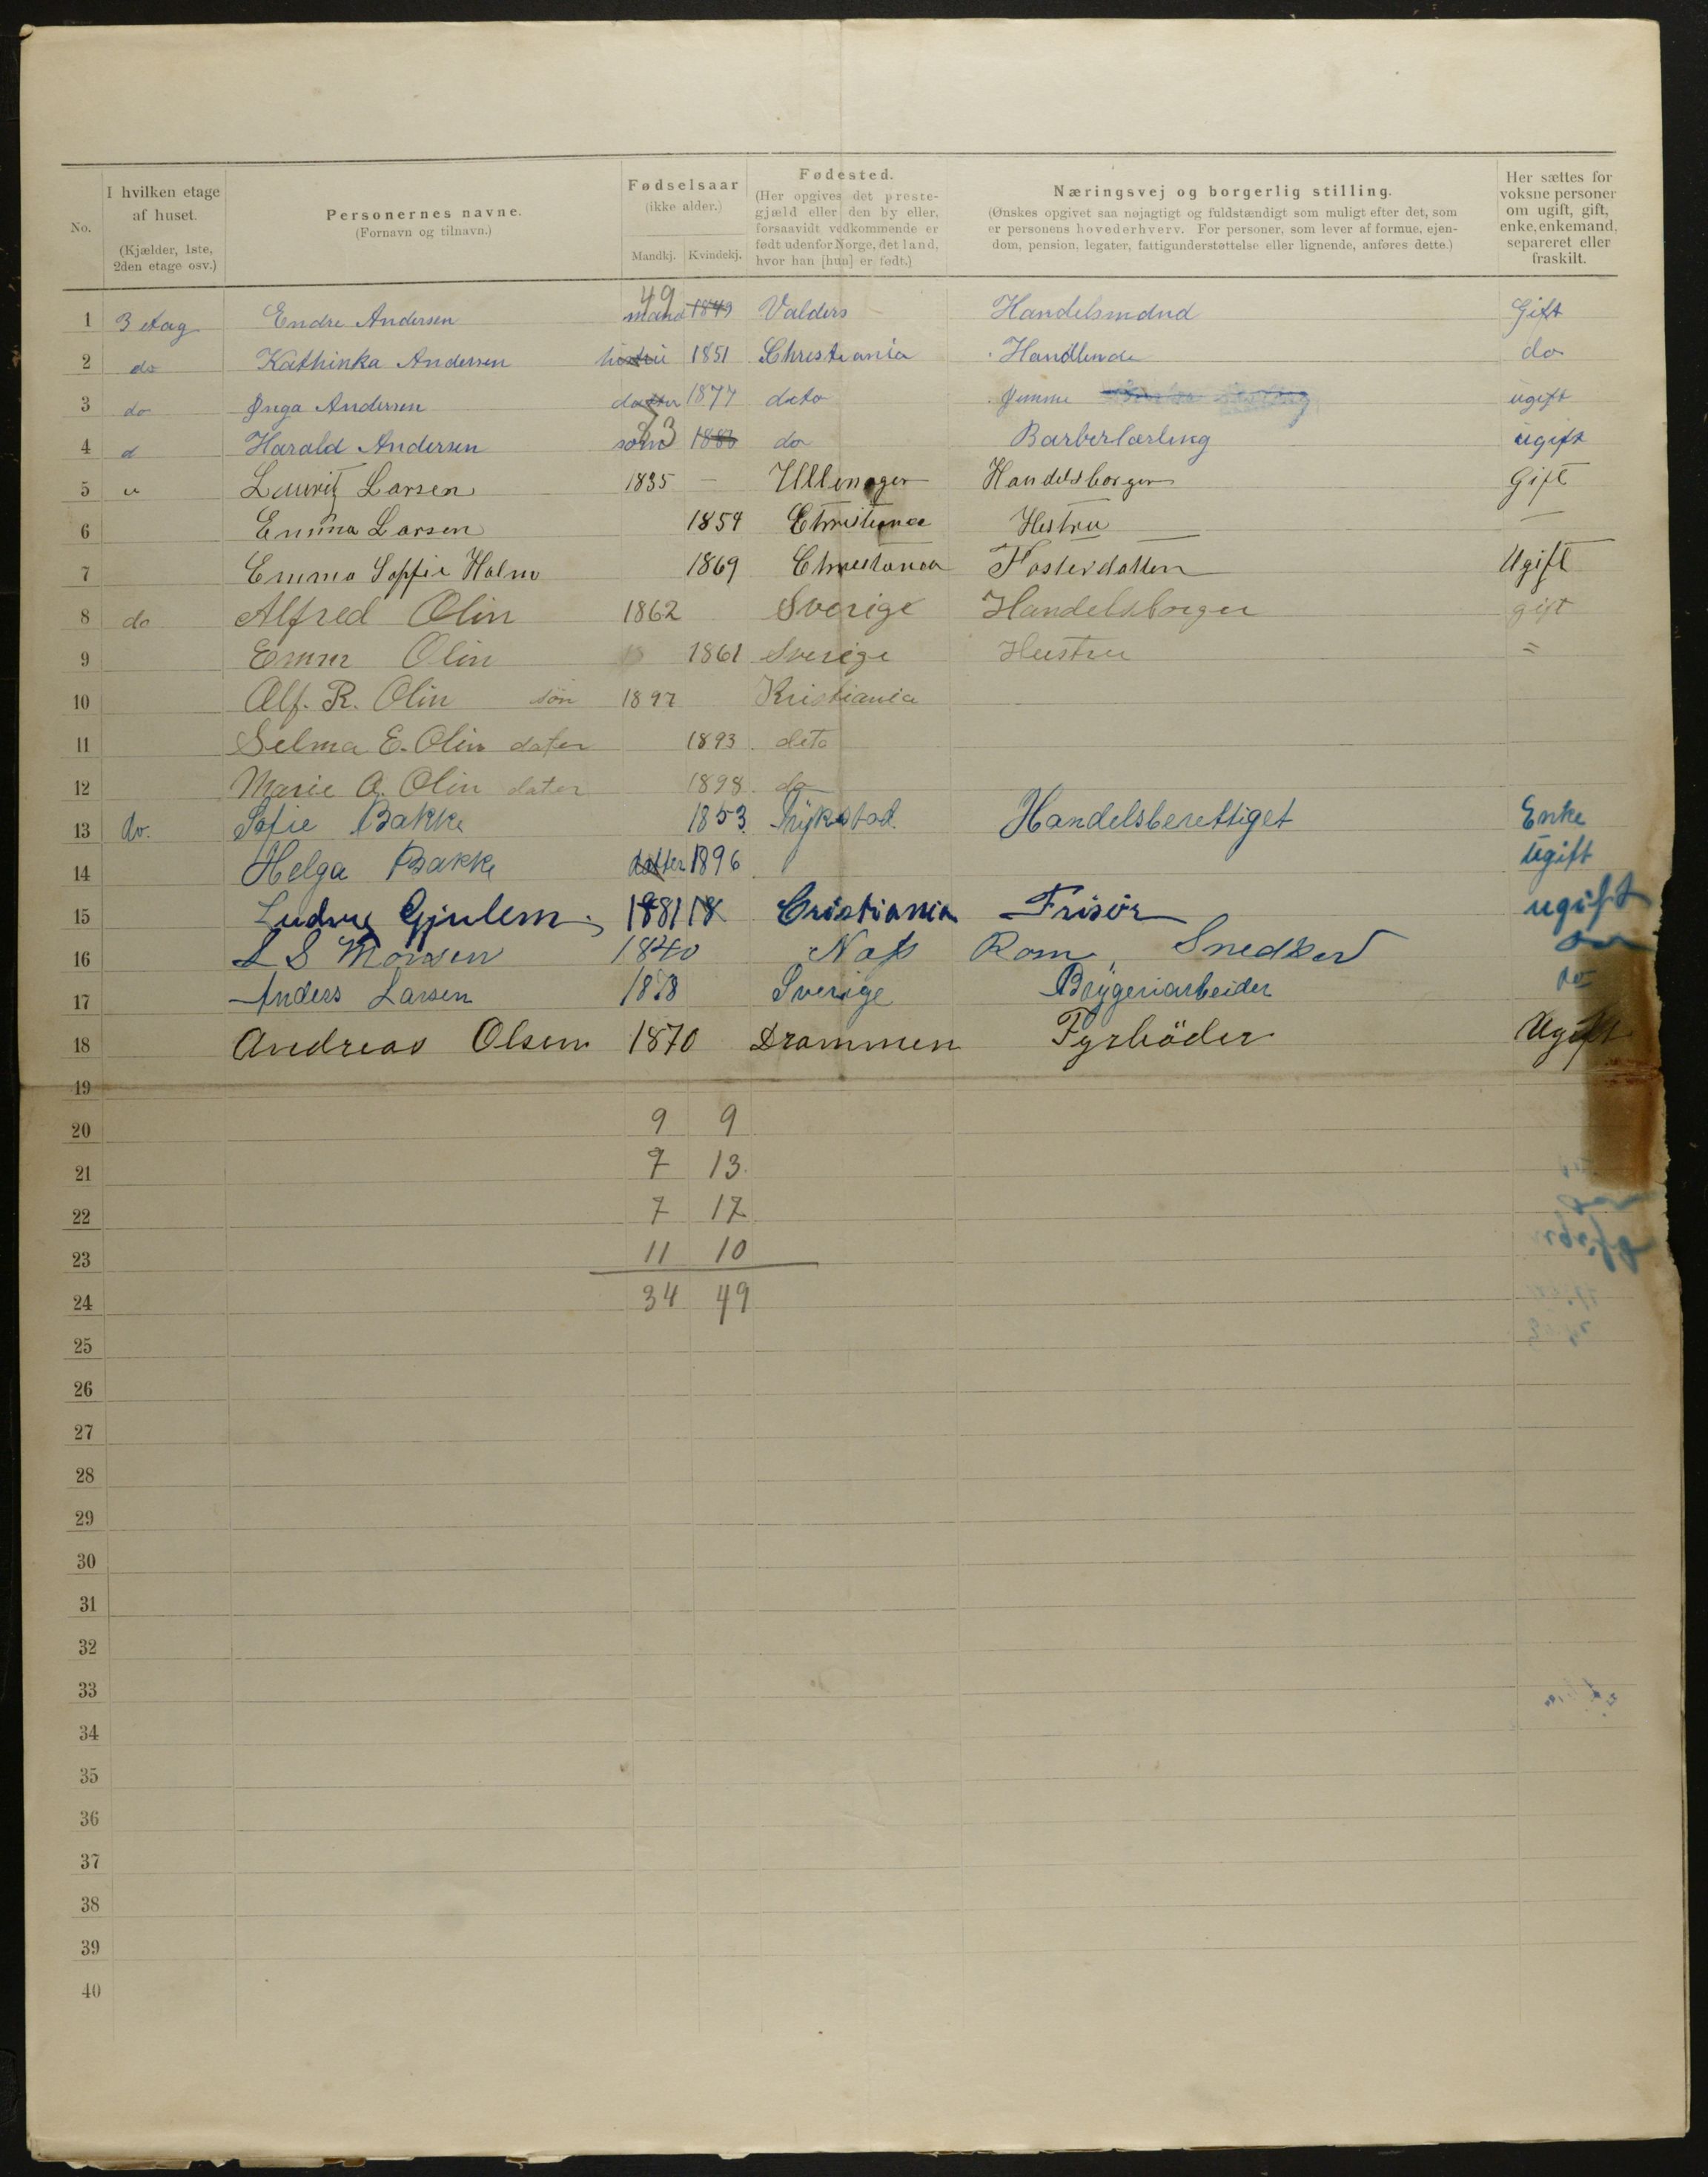 No.
I hvilken etage af huset.
(Kjælder, 1ste, 2den etage osv.)
Personernes navne.
(Fornavn og tilnavn.)
Fødselsaar
(ikke alder.)
Mandkj. Kvindekj.
Fødested.
(Her opgives det prestegjæld eller den by eller, forsaavidt vedkommende er født udenfor Norge, det land, hvor han [hun] er født.)
Næringsvej og borgerlig stilling.
(Ønskes opgivet saa nøjagtigt og fuldstændigt som muligt efter det, som er personens hovederhverv. For personer, som lever af formue, ejendom, pension, legater, fattigunderstøttelse eller lignende, anføres dette.)
Her sættes for voksne personer om ugift, gift, enke, enkemand, separeret eller fraskilt.
1 3 etag Endre Andersen mand 49 1849 Valders Handelsmand Gift
2 do Kathinka Andersen hustru 1851 Christiania Handlende do
3 do Inga Andersen datter 1877 deto Jemme ugift
4 d Harald Andersen søn 83 1883 do Barberlærling ugift
5 " Lauritz Larsen 1835 – Ullensager Handelsborger Gift
6 Emma Larsen 1854 Christiania Hustru —
7 Emma Sopfie Holm 1869 Christiania Fosterdatter Ugift
8 do Alfred Olin 1862 Sverige Handelsborger gift
9 Emm Olin 18 1861 Sverige Hustru =
10 Alf. R. Olin søn 1897 Kristiania
11 Selma E. Olin dater 1893 deto
12 Marie A. Olin dater 1898 do
13 do. Sofie Bakke 1853 Trykstad Handelsberettiget Enke
14 Helga Bakke datter 1896 ugift
15 Ludvig Gjulem 1881 18 Cristiania Frisör ugift
16 L S 1840 Næs Rom. Snedker do
17 Anders Larsen 1878 Sverige Bryggeriarbeider do
18 Andreas Olsen 1870 Drammen Fyrböder Ugift
19
20 9 9
21 7 13
22 7 17
23 11 10
24 34 49
25
26
27
28
29
30
31
32
33
34
35
36
37
38
39
40